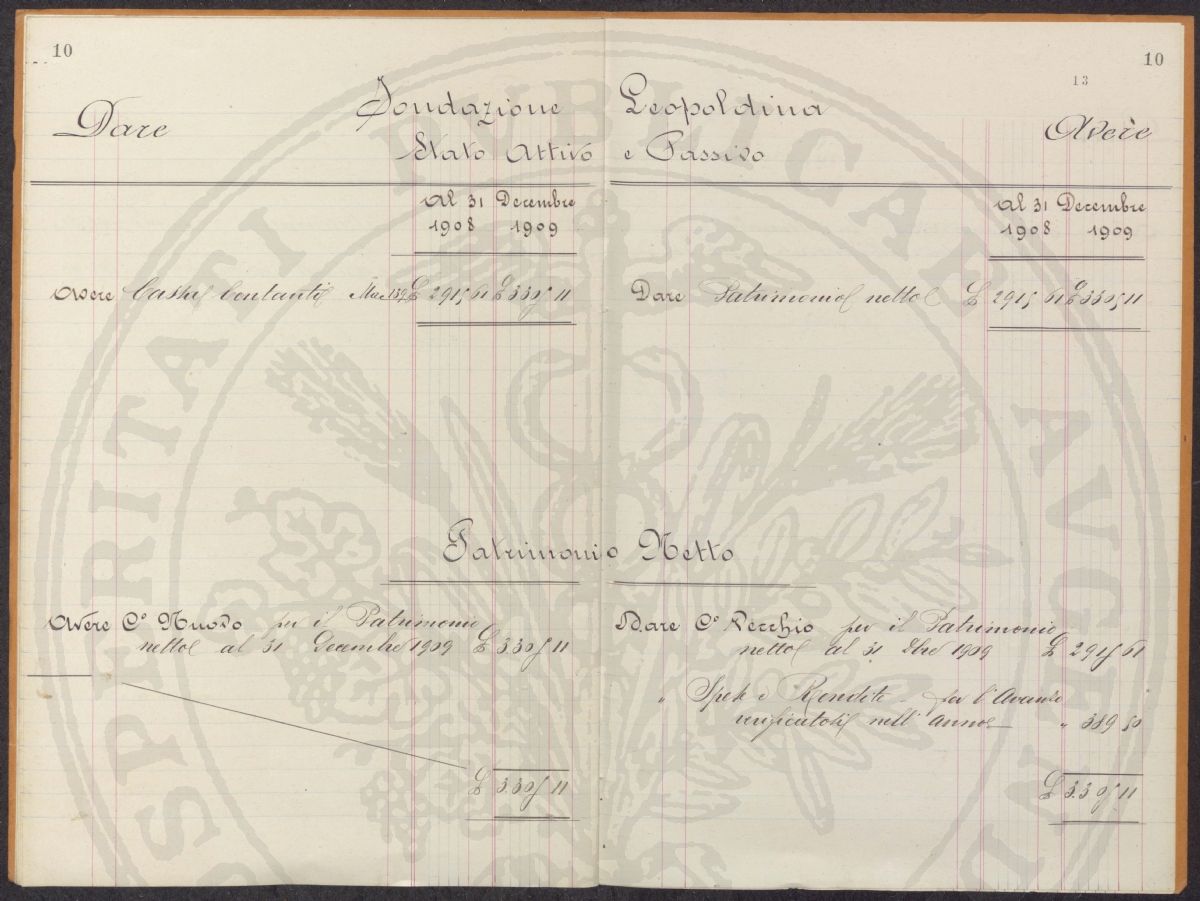 10
10
13
Dare
Fondazione Leopoldina
Avere
Stato Attivo e Passivo
Al 31 Decembre
1908 1909
Avere Cassa Contanti £ 2915 61 £ 3305 11
Al 31 Decembre
1908 1909
Dare Patrimonio netto £ 2915 61 £ 3305 11
Patrimonio Netto
Avere Cº Nuovo per il Patrimonio
netto al 31 Decembre 1909 £ 3305 11
£ 3.305 11
Dare Cº Vecchio per il Patrimonio
netto al 31 Dbre 1909 £ 2915 61
" Spese e Rendite per l'Avanzo
verificatosi nell' anno " 389 50
£ 3.305 11
SPERITATI PVBLICAE AVGEND